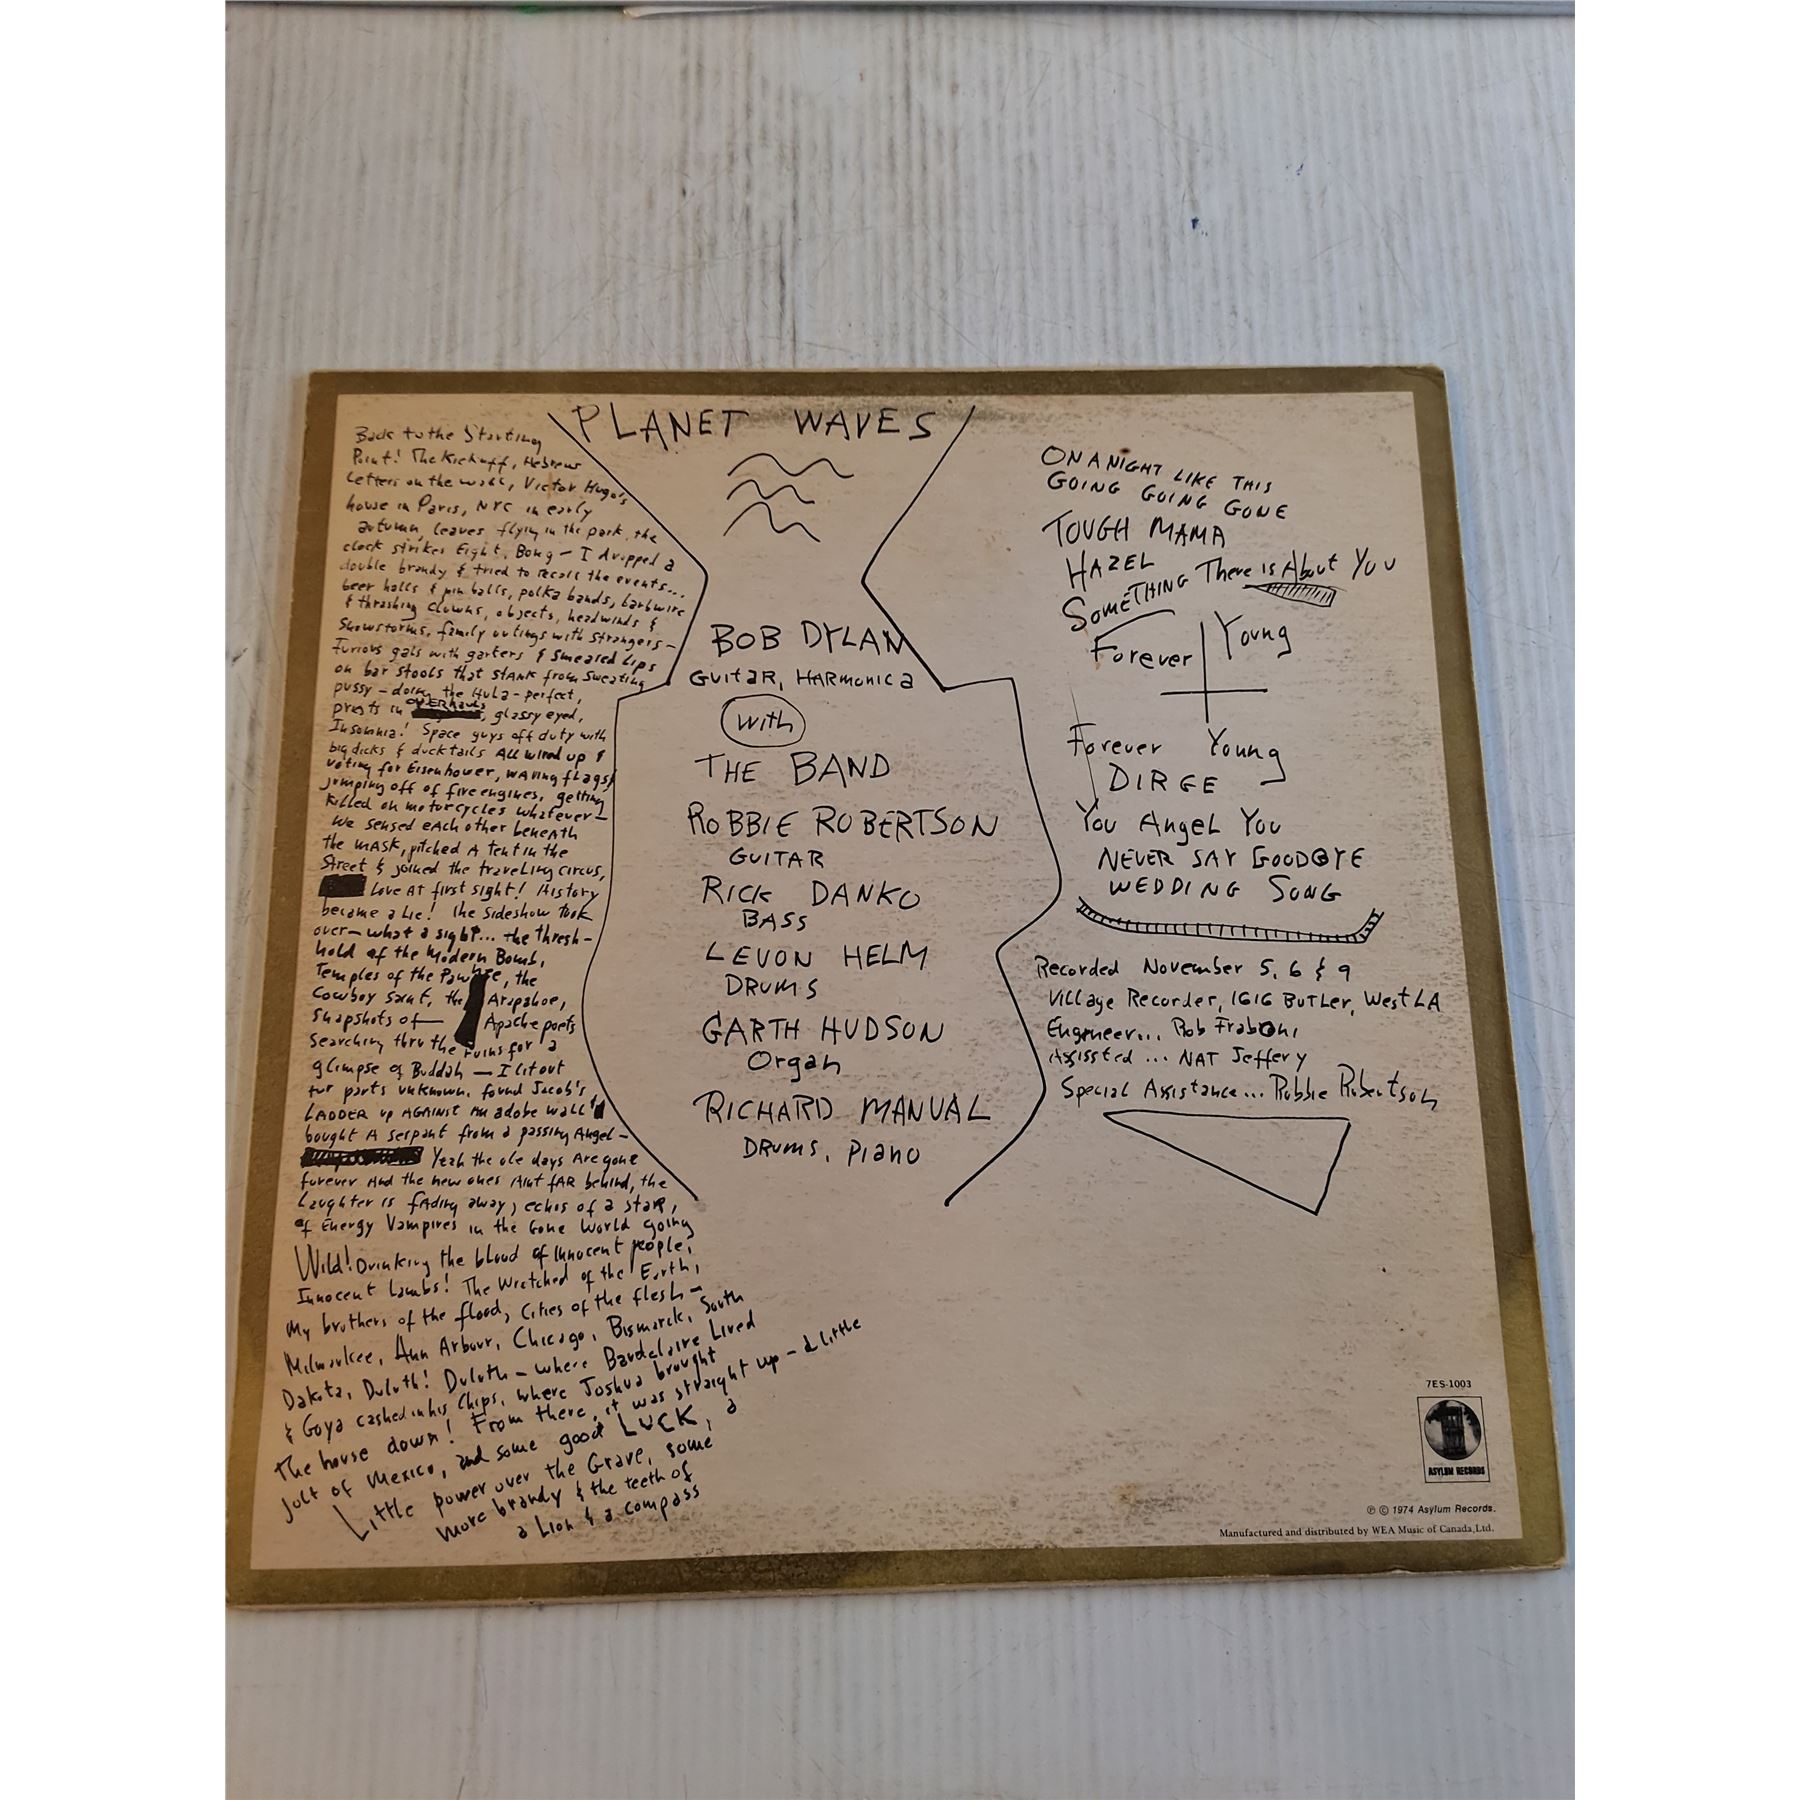 PLANET WAVES
Back to the Starting
Point! The Kickoff, Hebrew
Letters on the wall, Victor Hugo's
house in Paris, NYC in early
autumn, leaves flying in the park, the
clock strikes Eight, Bong – I dropped a
double brandy & tried to recall the events...
beer halls & pin balls, polka bands, barbwire
& thrashing clowns, objects, headwinds &
Snowstorms, family outings with strangers –
Furious gals with garters & smeared Lips
on bar stools that stank from sweating
pussy – doing the Hula – perfect,
priests in OVERhauls, glassy eyed,
Insomnia! Space guys off duty with
big dicks & ducktails All wired up &
voting for Eisenhower, waving flags &
jumping off of fire engines, getting
killed on motorcycles whatever –
We sensed each other beneath
the mask, pitched A tent in the
Street & joined the traveling circus,
Love At first sight! History
became a Lie! the sideshow took
over – what a sight... the thresh-
hold of the Modern Bomb,
Temples of the Pawnee, the
Cowboy saint, the Arapahoe,
Snapshots of – Apache poets
searching thru the ruins for a
glimpse of Buddah – I lit out
for parts unknown, found Jacob's
LADDER up AGAINST AN adobe wall &
bought A serpant from a passing Angel –
Yeah the ole days Are gone
forever And the new ones Aint fAR behind, the
Laughter is fading away, echos of a star,
of Energy Vampires in the Gone World going
Wild! Drinking the blood of Innocent people,
Innocent Lambs! The Wretched of the Earth,
My brothers of the flood, Cities of the flesh –
Milwaukee, Ann Arbour, Chicago, Bismarck, South
Dakota, Duluth! Duluth – where Baudelaire Lived
& Goya cashed in his Chips, where Joshua brought
the house down! From there, it was straight up – a little
jolt of Mexico, and some good LUCK, a
Little power over the Grave, some
more brandy & the teeth of
a Lion & a compass
BOB DYLAN
GUITAR, HARMONICA
With
THE BAND
ROBBIE ROBERTSON
GUITAR
RICK DANKO
BASS
LEVON HELM
DRUMS
GARTH HUDSON
Organ
RICHARD MANUAL
DRUMS, PIANO
ON A NIGHT LIKE THIS
GOING GOING GONE
TOUGH MAMA
HAZEL
SOMETHING There is About You
Forever Young
Forever Young
DIRGE
You Angel You
NEVER SAY GOODBYE
WEDDING SONG
Recorded November 5, 6 & 9
Village Recorder, 1616 BUTLER, West LA
Engineer... Rob Fraboni
Assissted ... NAT Jeffery
Special Assistance... Robbie Robertson
7ES-1003
ASYLUM RECORDS
℗ © 1974 Asylum Records.
Manufactured and distributed by WEA Music of Canada, Ltd.